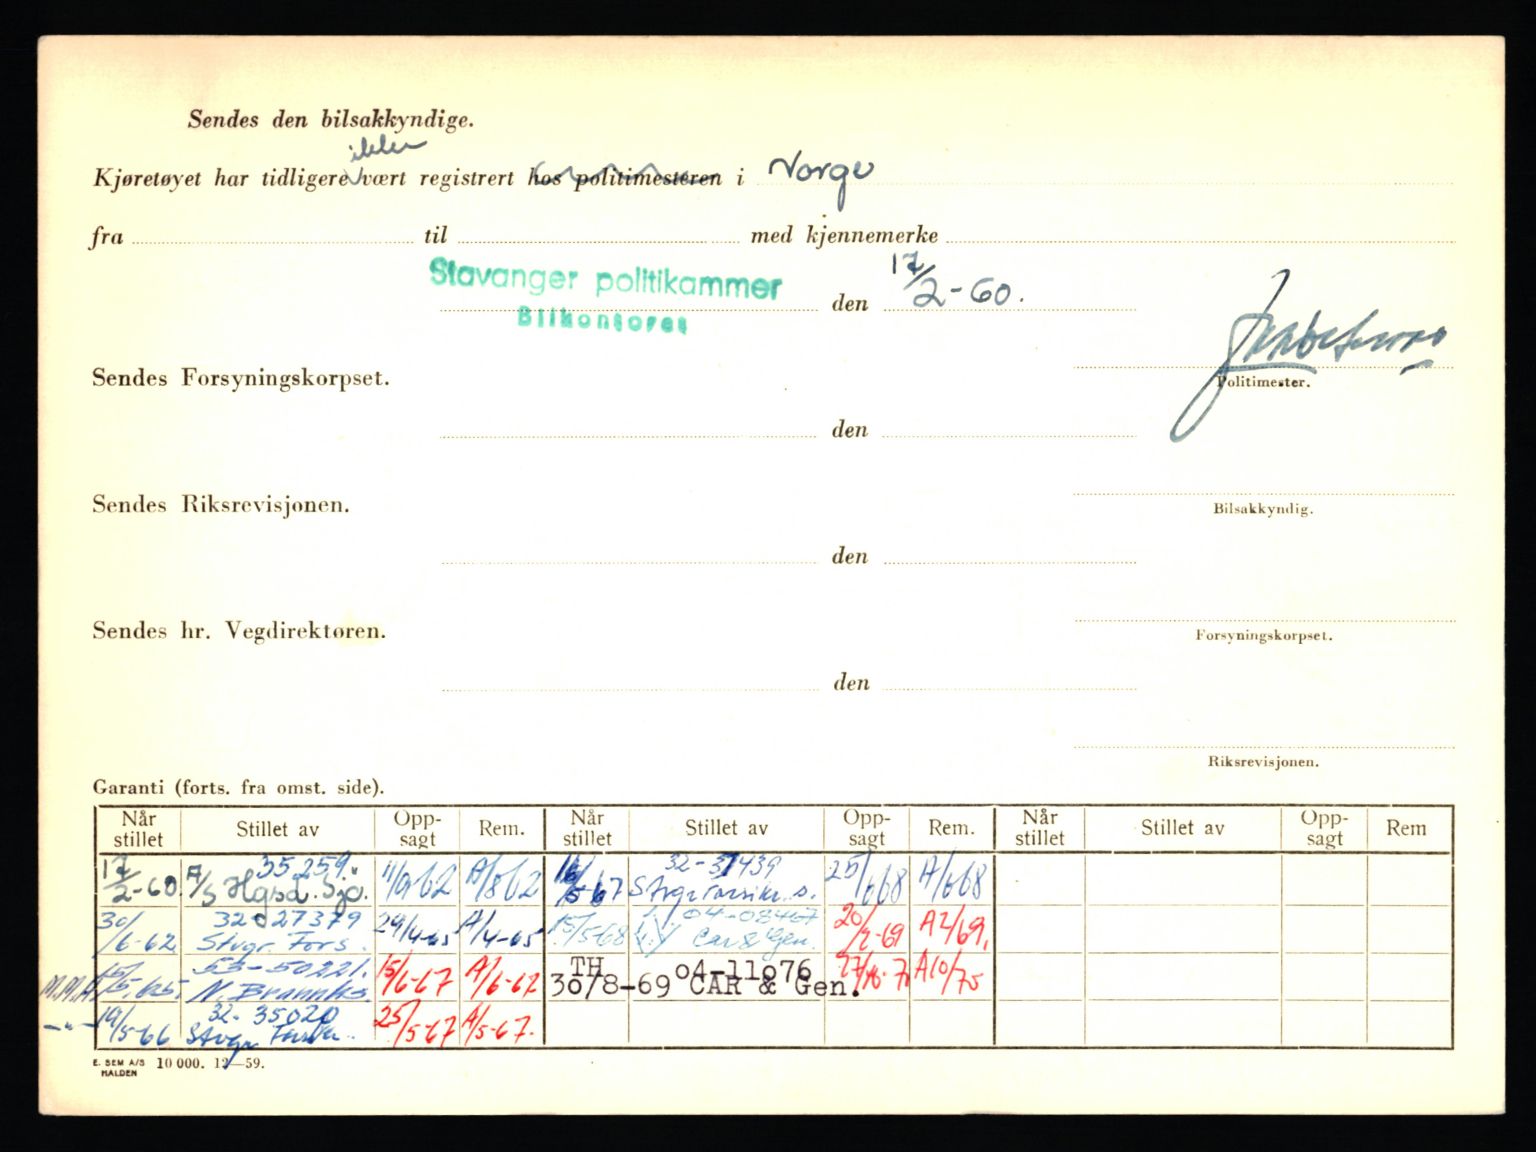 Sendes den bilsakkyndige.
ikke
Kjøretøyet har tidligere vært registrert hos politimesteren i Norge
fra til med kjennemerke
Stavanger politikammer
Bilkontoret
den 17/2-60.
Sendes Forsyningskorpset.
Politimester.
den
Sendes Riksrevisjonen.
Bilsakkyndig.
den
Sendes hr. Vegdirektøren.
Forsyningskorpset.
den
Riksrevisjonen.
Garanti (forts. fra omst. side).
Når stillet Stillet av Opp-sagt Rem. Når stillet Stillet av Opp-sagt Rem. Når stillet Stillet av Opp-sagt Rem
17/2-60. 35259. A/S Hgsd. Sjø. A/8 62 16/5-67 25/6 68 A/6 68
30/6-62 32 27379 Stvgr. Fors. 29/4-65 A/4-65 15/5-68 04-08467 Car & Gen. 20/2-69 A2/69.
53-50221. 15/6-67 A/6-67 30/8-69 TH 04-11076 CAR & Gen. A10/75
19/5-66 32-35020 25/5-67 A/5-67.
E. SEM A/S HALDEN 10 000. 12—59.